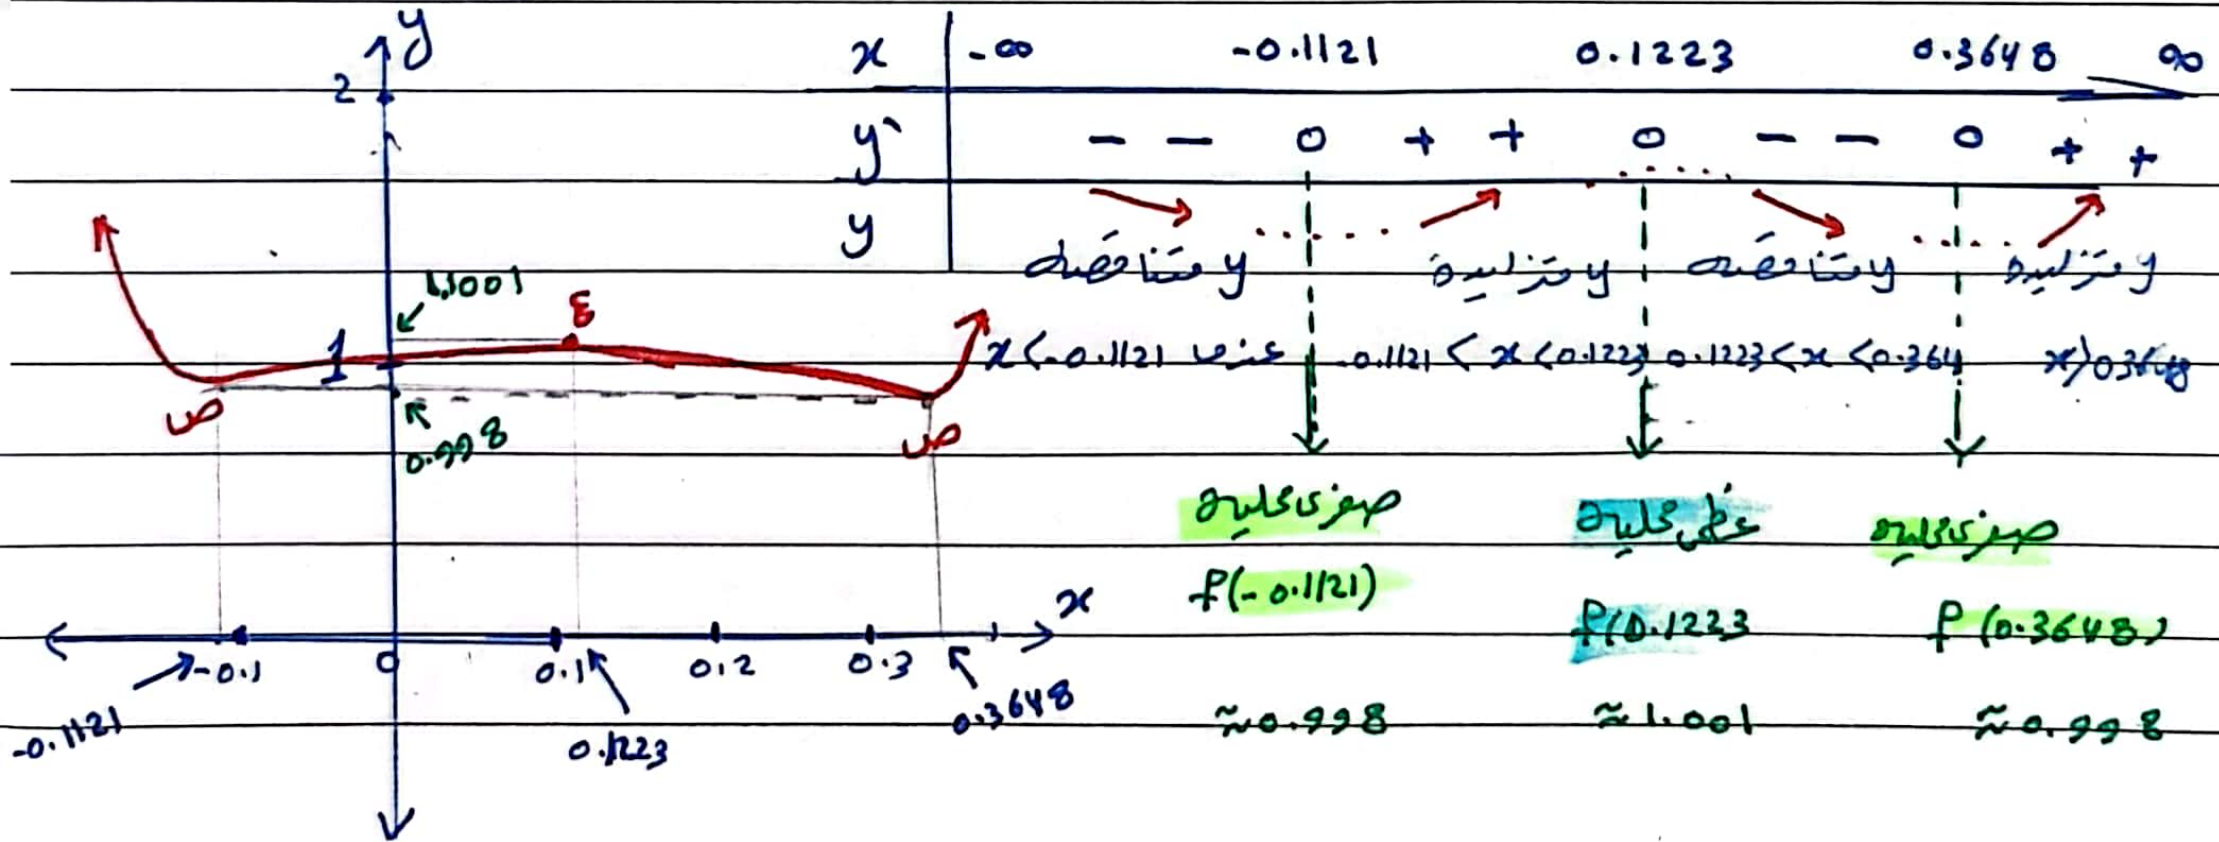 y
2
1.1001
ع
1
ص
0.998
ص
x
-0.1 0 0.1 0.2 0.3
-0.1121
0.1223
0.3648
x -∞ -0.1121 0.1223 0.3648 ∞
y` - - 0 + + 0 - - 0 + +
y
y متناقصه y متزايدة y متناقصه y متزايدة
x<-0.1121 عندما -0.1121 < x < 0.1223 0.1223 < x < 0.364 x>0.3648
صغرى محلية عظمى محلية صغرى محلية
f(-0.1121) f(0.1223 f(0.3648)
≈0.998 ≈1.001 ≈0.998